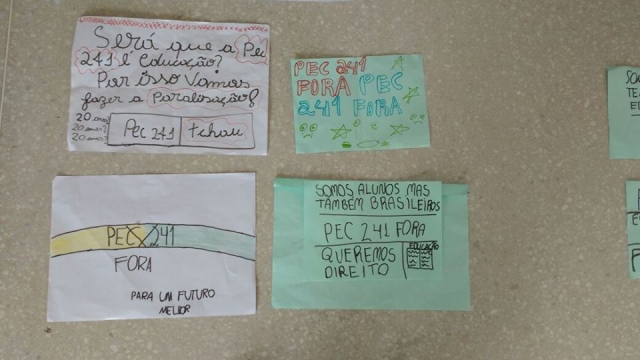 Será que a Pec
241 é educação?
Por isso vamos
fazer a Paralisação!
20 anos
20 anos?
20 anos?
Pec 241 tchau
PEC 241
FORA PEC
241 FORA
PEC 241
FORA
PARA UM FUTURO
MELIOR
SOMOS ALUNOS MAS
TAMBÉM BRASILEIROS
PEC 241 FORA
QUEREMOS
DIREITO
EDUCAÇÃO